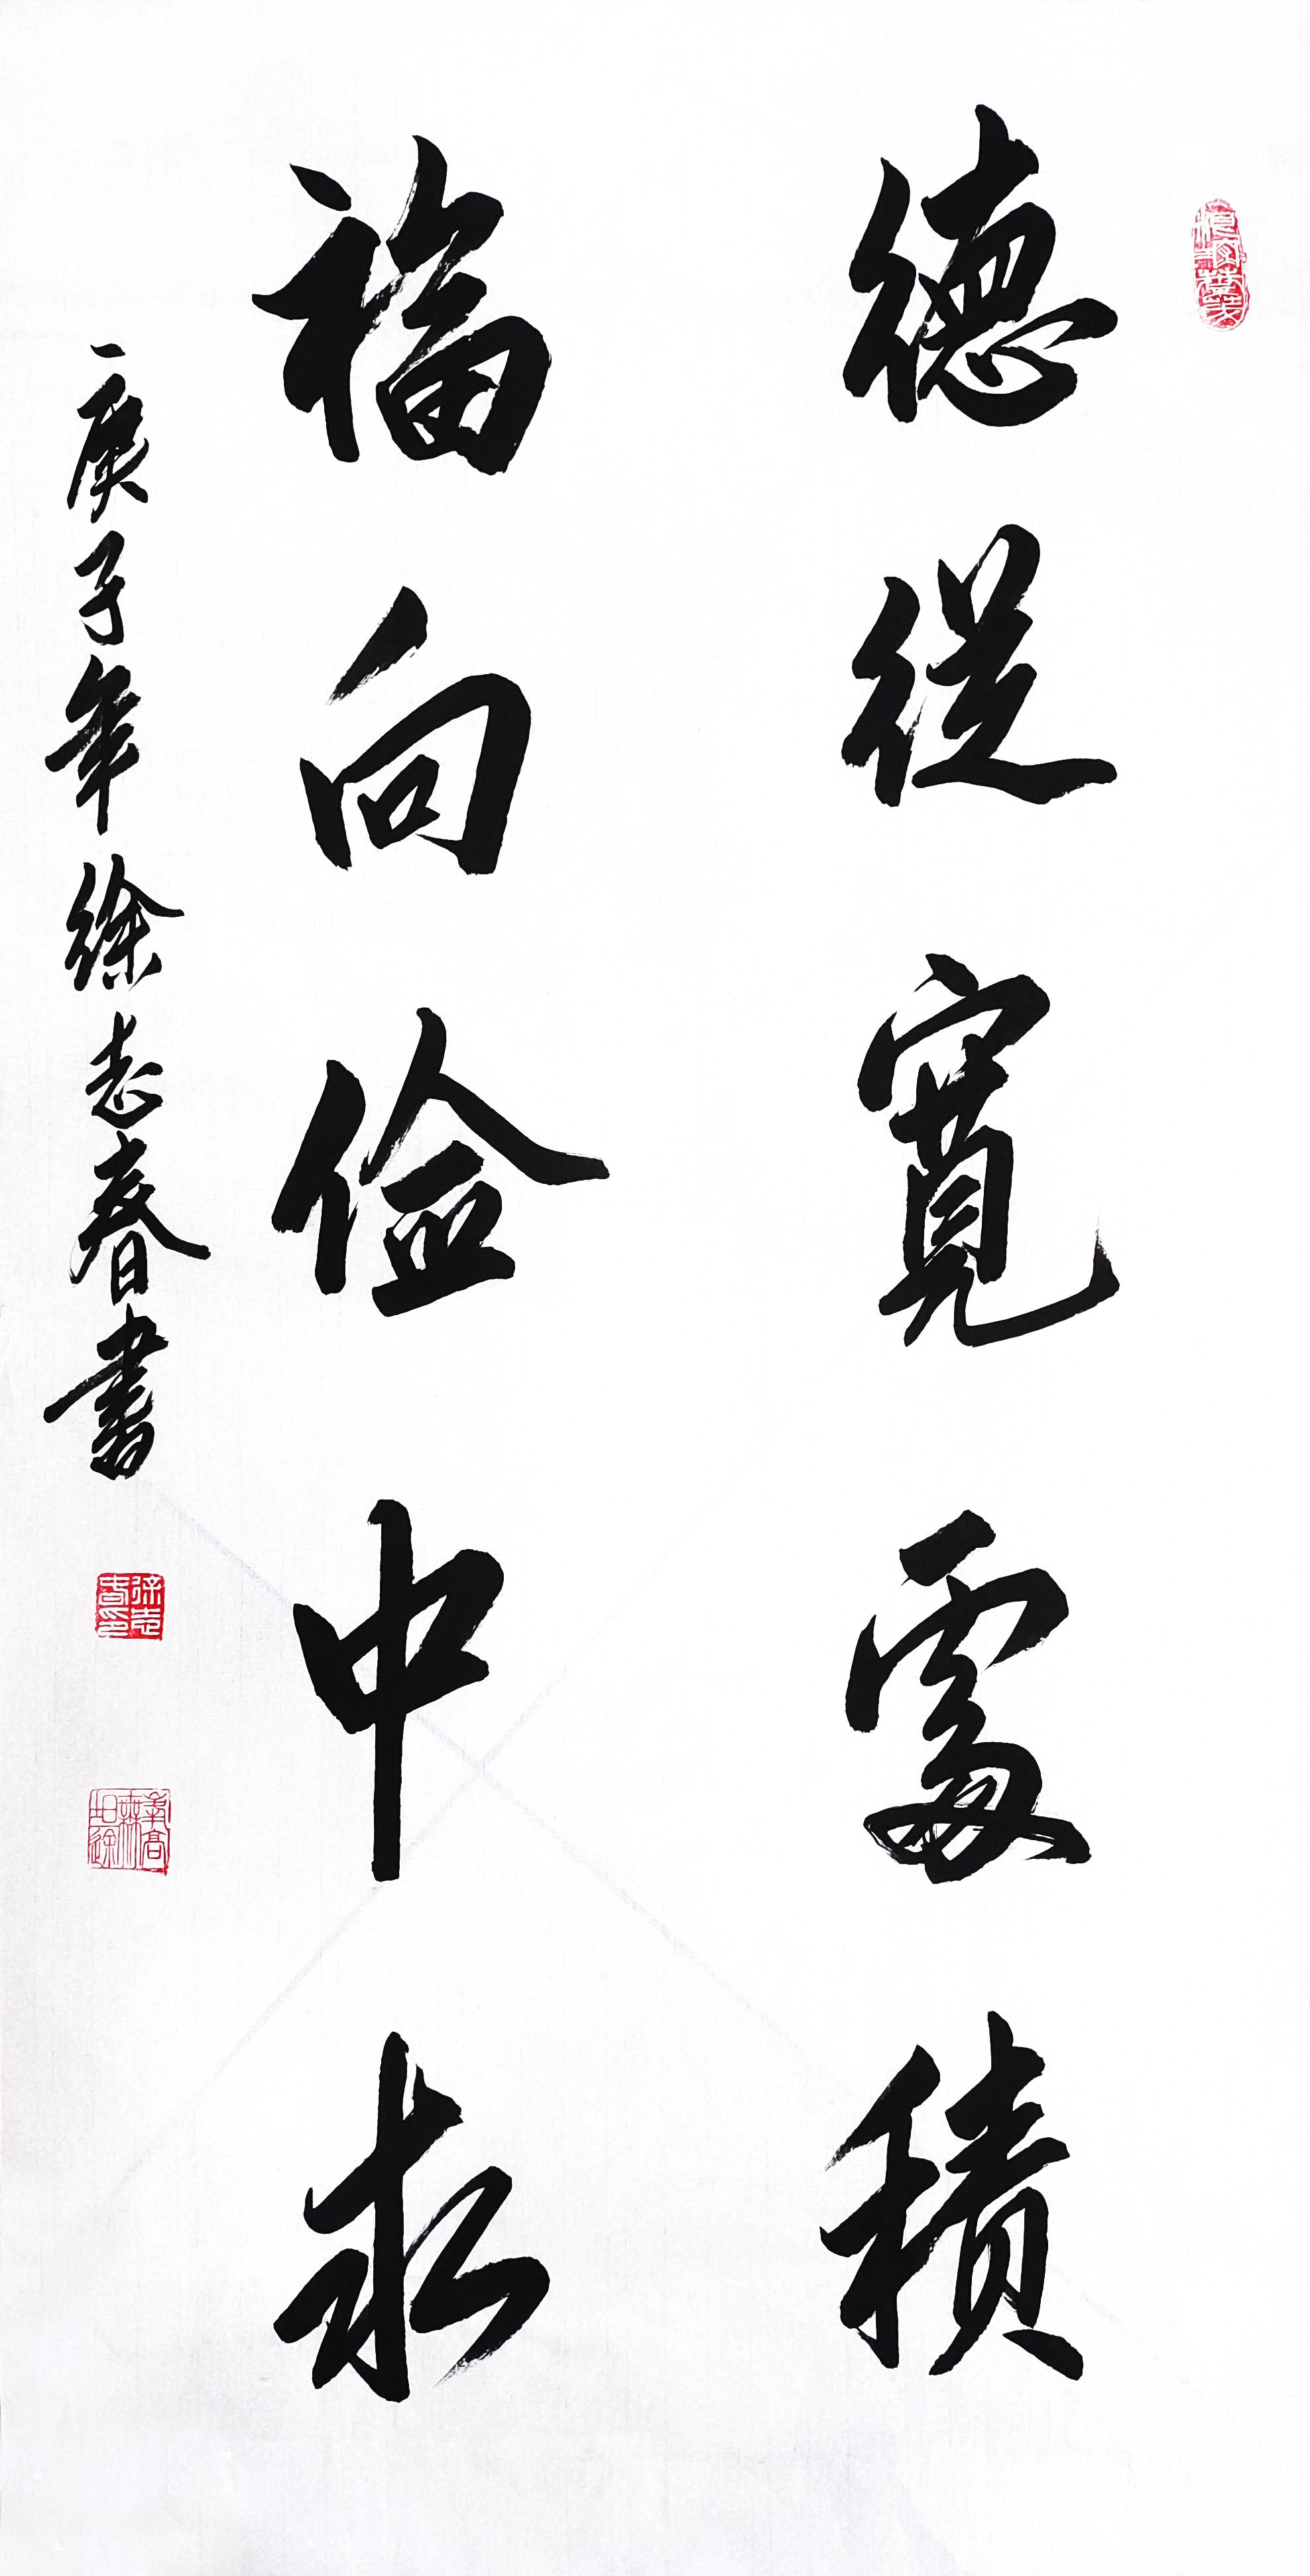 德從寬處積
福向儉中求
庚子年徐志春書
徐志春印